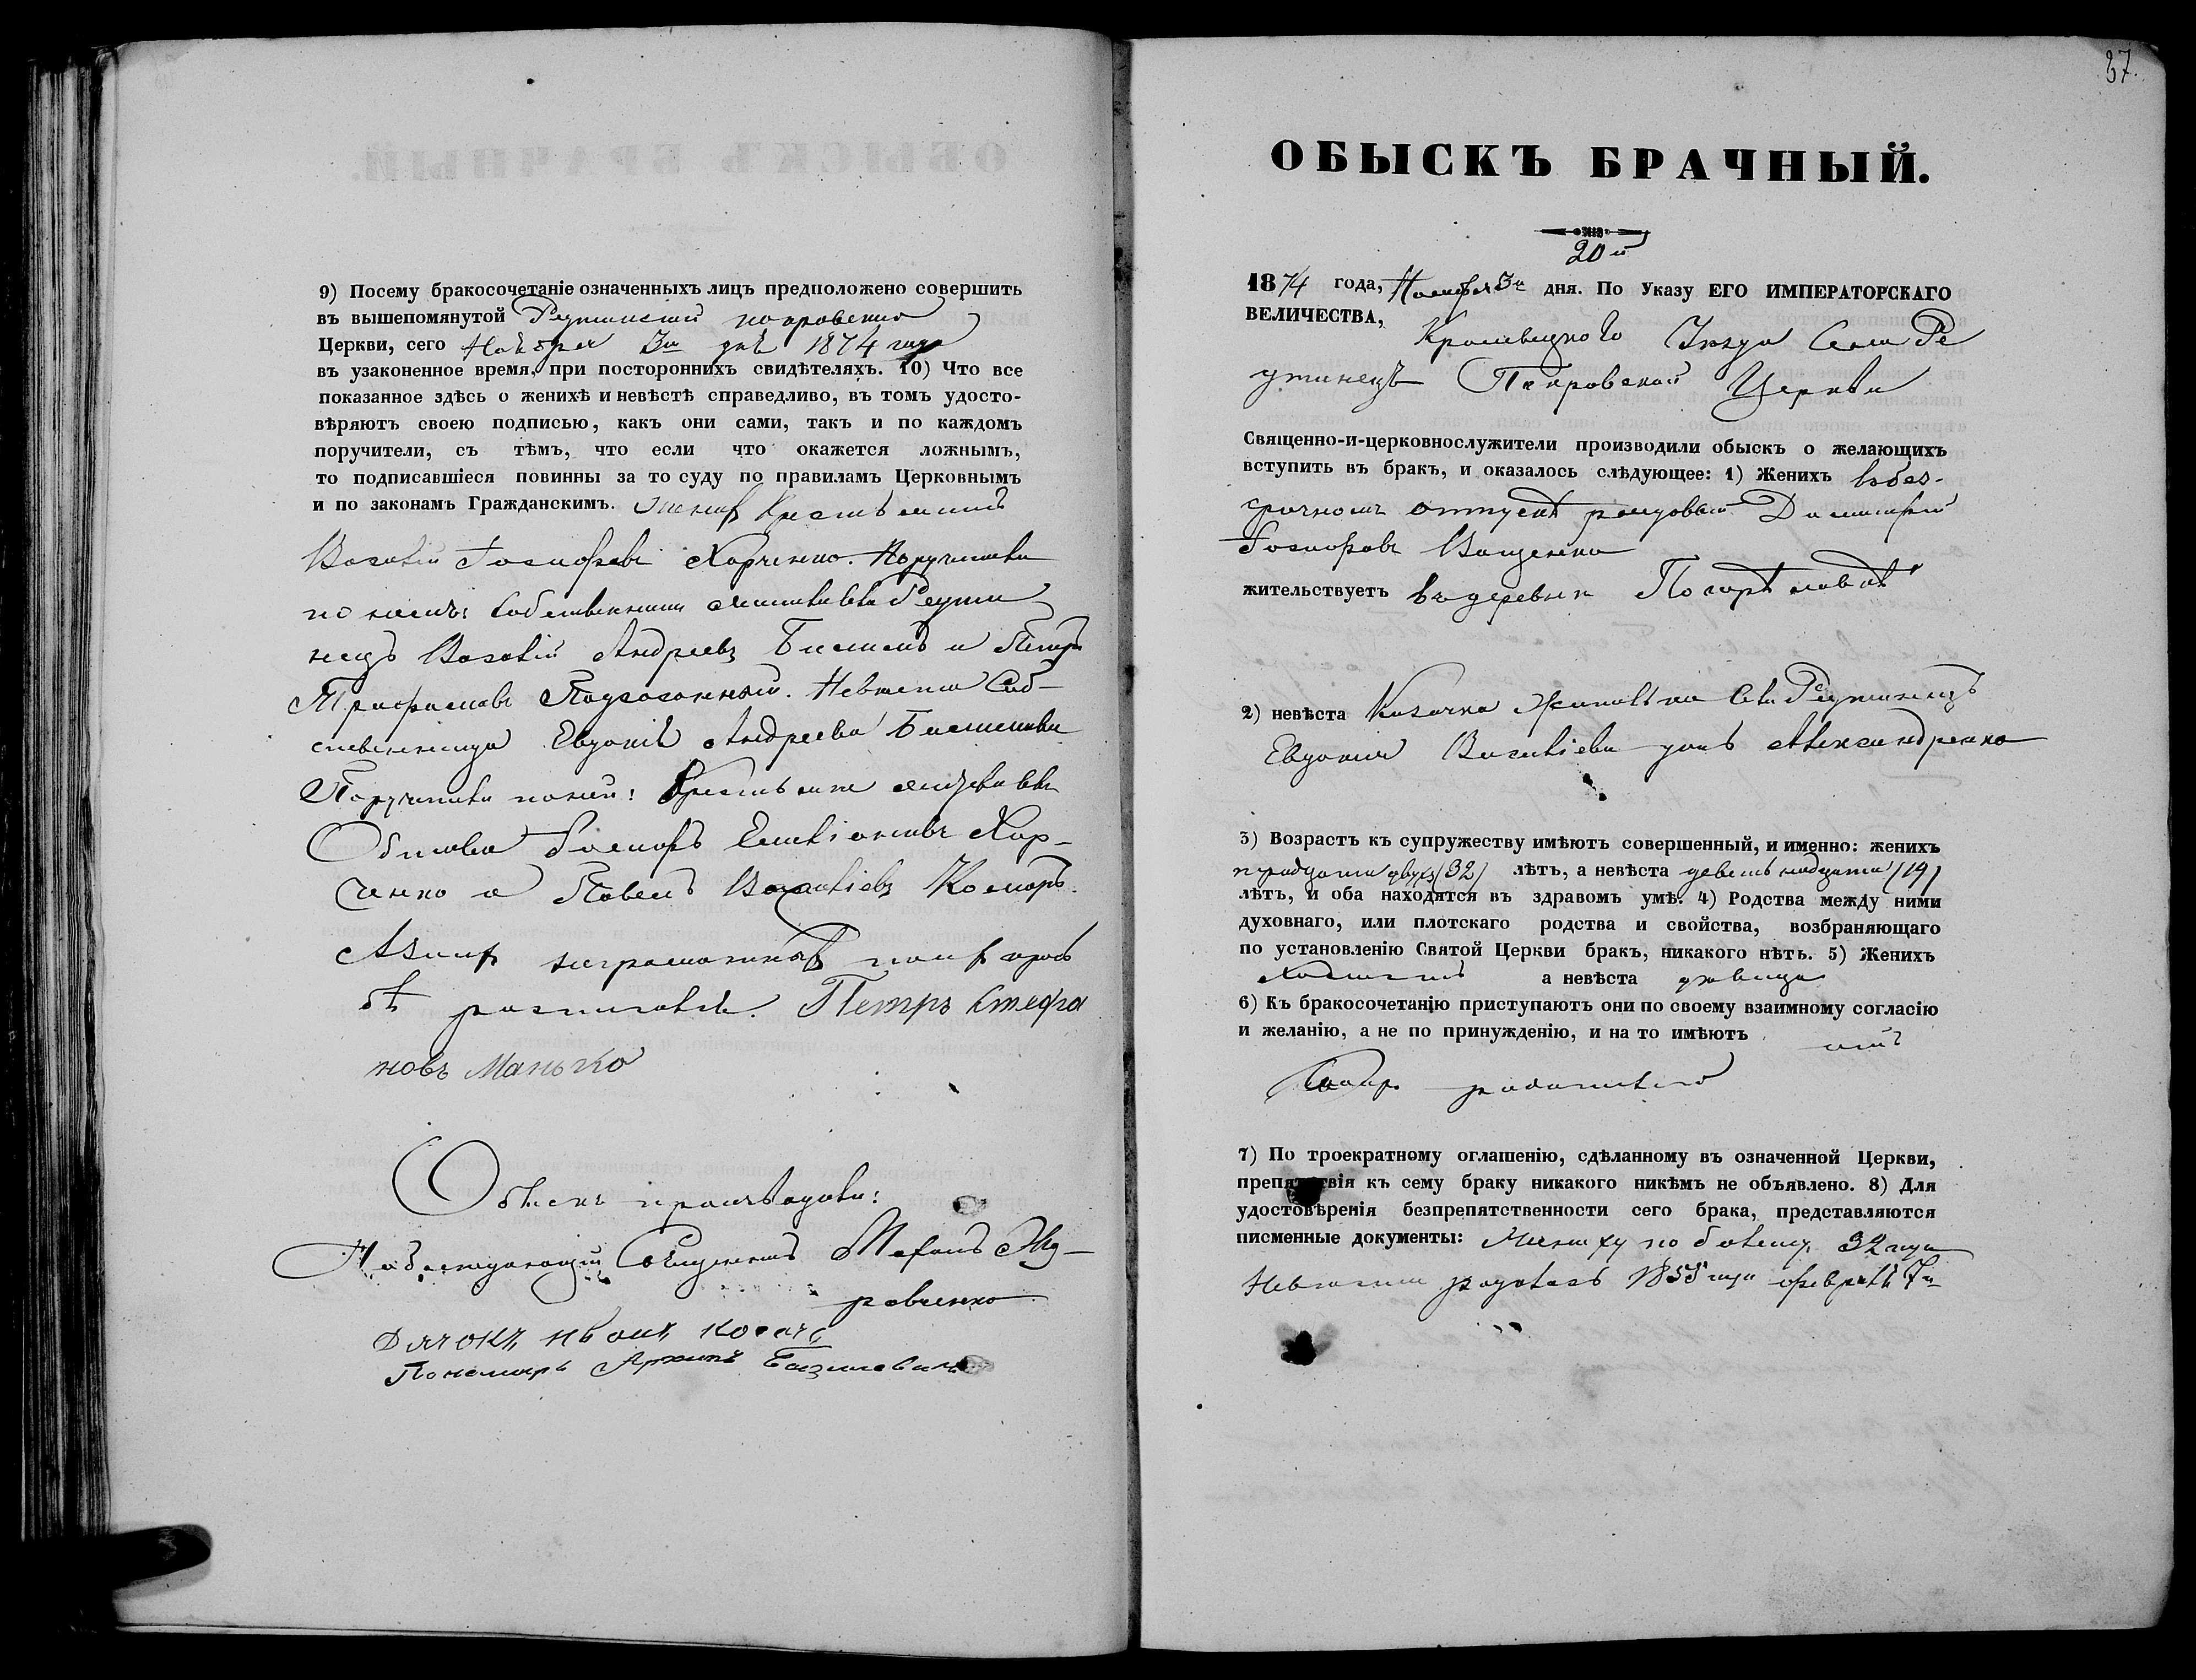 9) Посему бракосочетаніе означенныхъ лицъ предположено совершить
въ вышепомянутой Реутинской покровской
Церкви, сего Ноября 3го дня 1874 года
въ узаконенное время, при постороннихъ свидѣтеляхъ. 10) Что все
показанное здѣсь о женихѣ и невѣстѣ справедливо, въ томъ удосто-
вѣряютъ своею подписью, какъ они сами, такъ и по каждомъ
поручители, съ тѣмъ, что если что окажется ложнымъ,
то подписавшіеся повинны за то суду по правиламъ Церковнымъ
и по законамъ Гражданскимъ. Женихъ Крестьянинъ
Василій Іосифовъ Харченко. Поручители
по немъ: собственники Реути
нецъ Василій Андреевъ и Петръ
Трофимовъ. Невеста Соб-
ственница Евдокія Андреева
Поручители по ней: Крестьяне
Іосифъ Хар-
ченко и Павелъ Василіевъ Комаръ.
А за ихъ неграмотныхъ по ихъ прозь
бѣ росписался Петръ Стефа
новъ Манько
Обыскъ производили:
Священникъ Стефанъ
Дячокъ Иванъ Косачъ
Пономарь Архипъ Базилевичъ
37.
ОБЫСКЪ БРАЧНЫЙ.
20й
1874 года, Ноября 3го дня. По Указу ЕГО ИМПЕРАТОРСКАГО
ВЕЛИЧЕСТВА,
Кролевецкого Уезда Села Ре
утинецъ Покровской Церкви
Священно-и-церковнослужители производили обыскъ о желающихъ
вступить въ бракъ, и оказалось слѣдующее: 1) Женихъ въ без-
срочномъ отпускѣ рядовой Димитрій
Іосифовъ Ващенко
жительствуетъ въ деревни Погорѣловкѣ
2) невѣста Козачка Села Реутинецъ
Евдокія Василіева дочь Александренко
3) Возрастъ къ супружеству имѣютъ совершенный, и именно: женихъ
тридцати двухъ (32) лѣтъ, а невѣста девятнадцати (19)
лѣтъ, и оба находятся въ здравомъ умѣ. 4) Родства между ними
духовнаго, или плотскаго родства и свойства, возбраняющаго
по установленію Святой Церкви бракъ, никакого нѣтъ. 5) Женихъ
холостъ а невѣста девица
6) Къ бракосочетанію приступаютъ они по своему взаимному согласію
и желанію, а не по принужденію, и на то имѣютъ отъ
родителей
7) По троекратному оглашенію, сдѣланному въ означенной Церкви,
препятствія къ сему браку никакого никѣмъ не объявлено. 8) Для
удостовѣренія безпрепятственности сего брака, представляются
писменные документы: Жениху по билету 32 года
Невеста родилась 1855 года февраля 7го